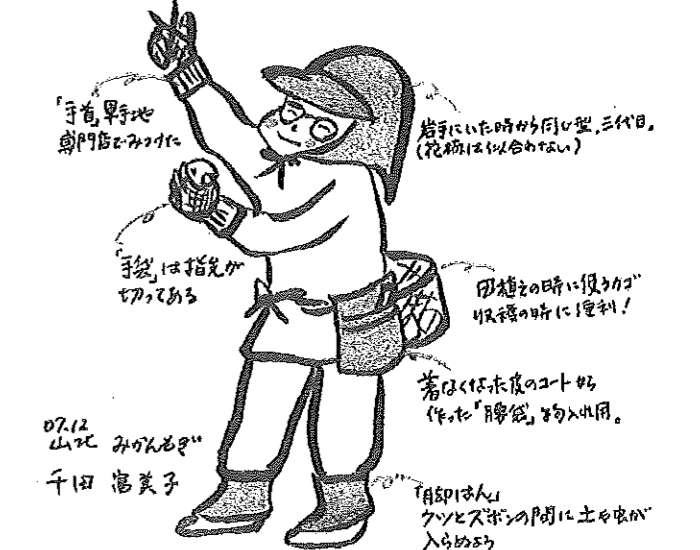 「手首」専手地
専門店でみつけた
岩手にいた時から同じ型、三代目。
(花柄は似合わない)
「手袋」は指先が
切ってある
田植えの時に使うカゴ
収穫の時に便利!
着なくなった皮のコートから
作った「腰袋」物入れ用。
07.12
山北 みかんもぎ
千田 富美子
「脚はん」
クツとズボンの間に土や虫が
入らぬよう